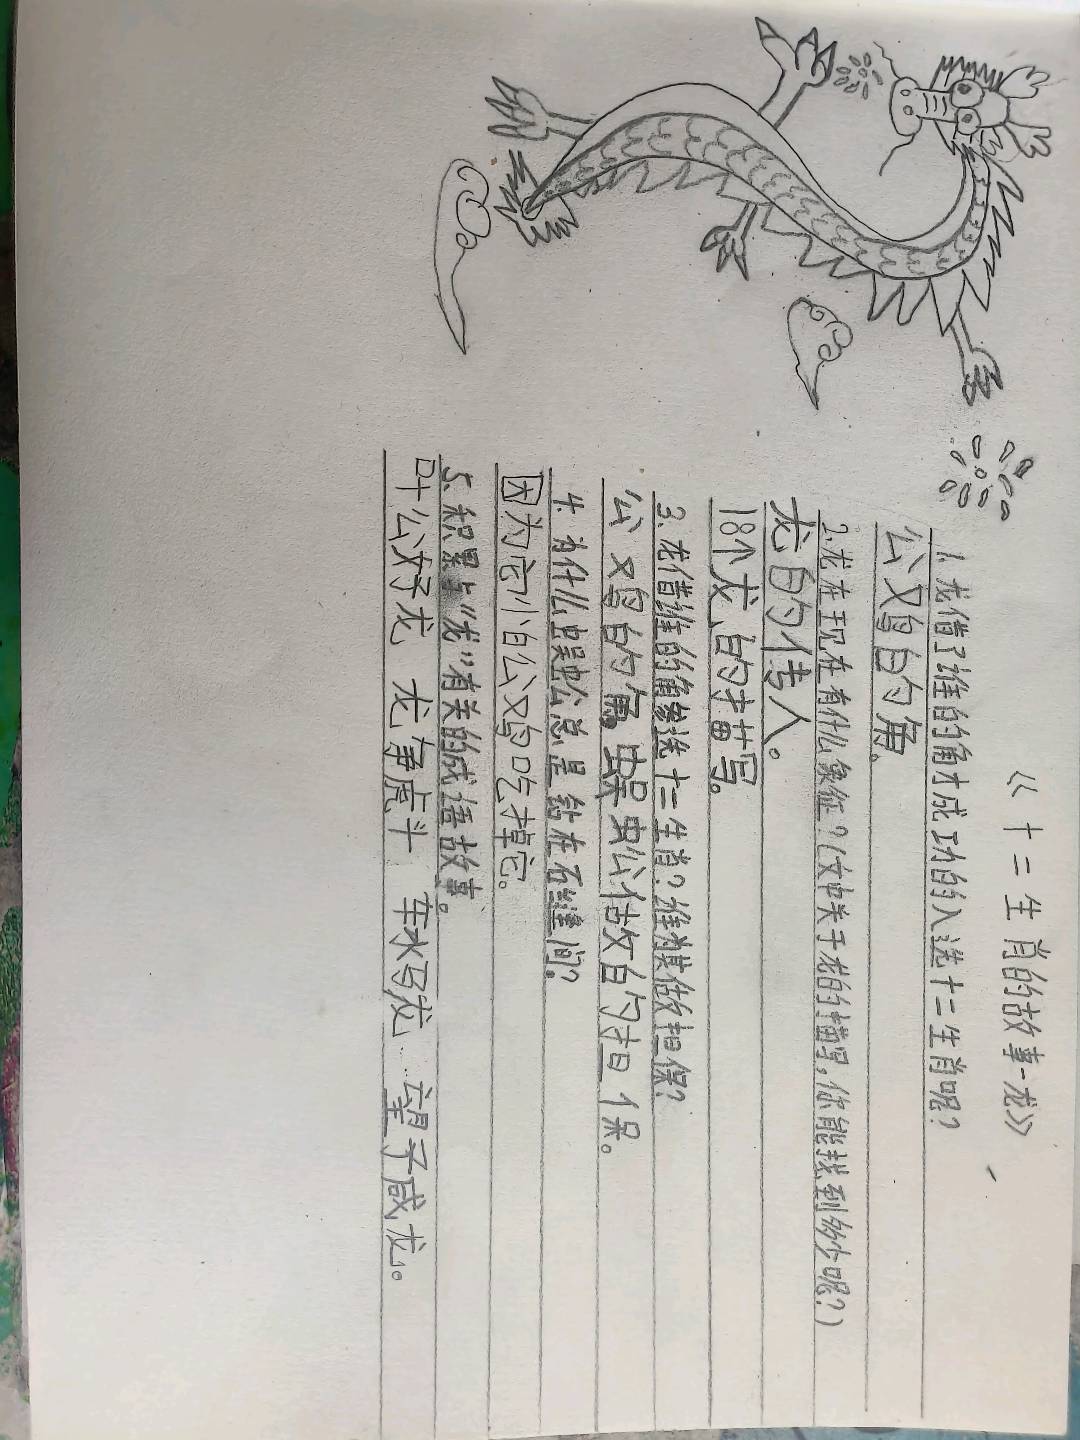 《十二生肖的故事-龙》
1.龙借了谁的角才成功的入选十二生肖呢?
公鸡的角。
2.龙在现在有什么象征?(文中关于龙的描写,你能找到多少呢?)
龙的传人。
18个龙的描写。
3.龙借谁的角参选十二生肖?谁为其做担保?
公鸡的角,蜈蚣做的担保。
4.为什么蜈蚣总是钻在石缝间?
因为它怕公鸡吃掉它。
5.积累与"龙"有关的成语故事。
叶公好龙 龙争虎斗 车水马龙 望子成龙。